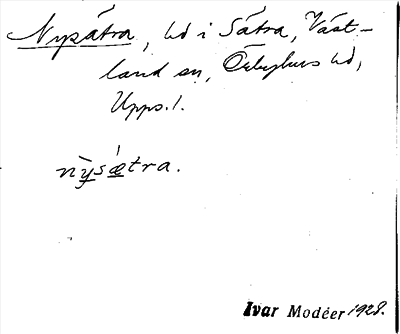 Nysätra, hd i Sätra, Väst-
land sn, Örbyhus hd,
Upps. l.
nysætra.
Ivar Modéer 1928.